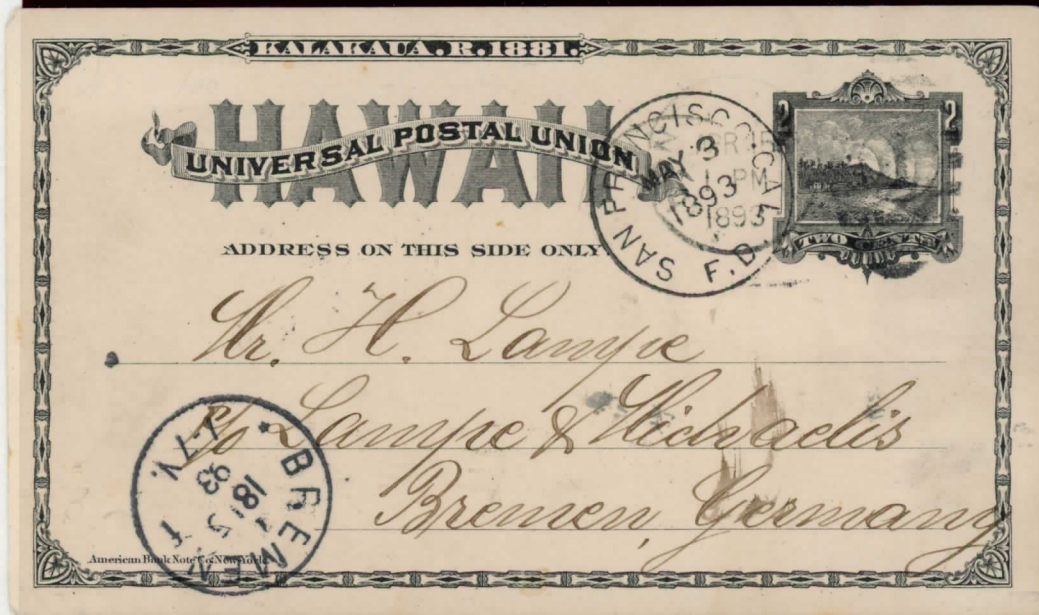 KALAKAUA.R.1881.
HAWAII
UNIVERSAL POSTAL UNION
2 2
TWO CENTS
SAN FRANCISCO, CAL.
MAY 3
1893
F.D.
PM
1893
ADDRESS ON THIS SIDE ONLY.
Mr. H. Lampe
c/o Lampe & Michaelis
Bremen, Germany
BREMEN
1
18
93
American Bank Note Co. New York.